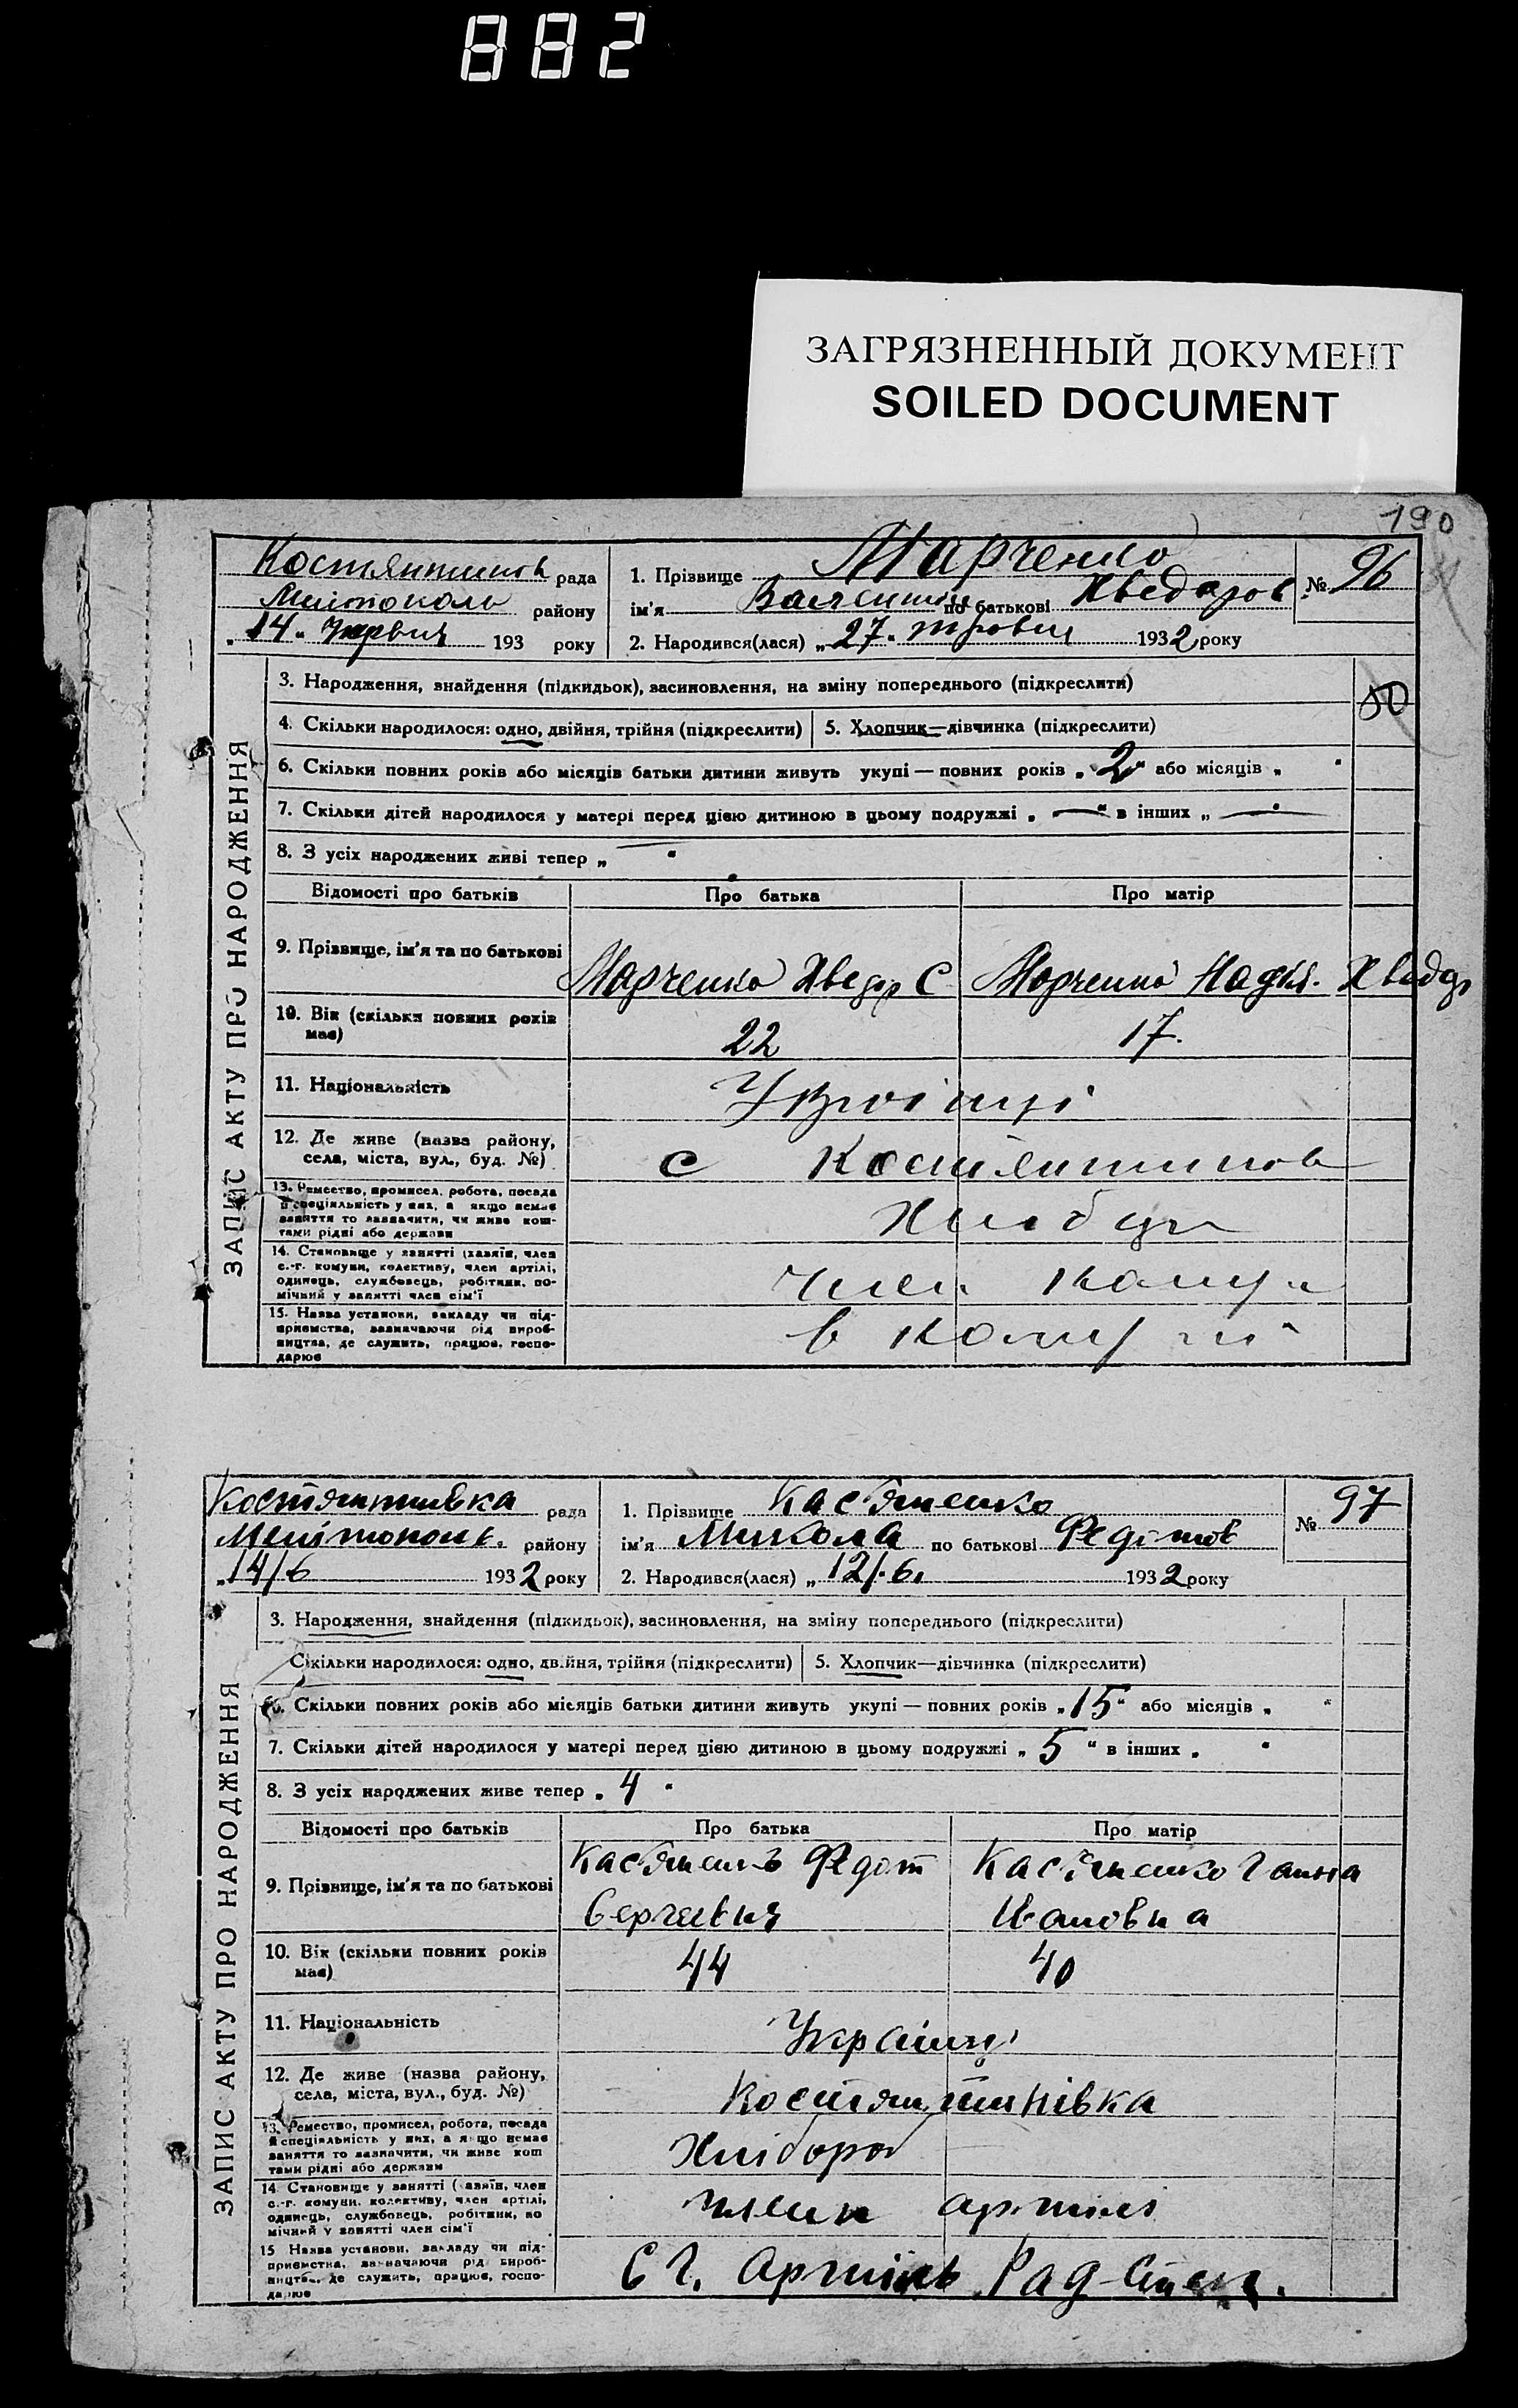 882
ЗАГРЯЗНЕННЫЙ ДОКУМЕНТ
SOILED DOCUMENT
190
ЗАПИС АКТУ ПРО НАРОДЖЕННЯ
Костянтинов рада
Мелітополь району
„14" Червня 193 року
1. Прізвище Марченко
ім'я Валентин по батькові Хведоров
№ 96
2. Народився(лася) „27" травня 1932 року
3. Народження, знайдення (підкидьок), засиновлення, на зміну попереднього (підкреслити)
50
4. Скільки народилося: одно, двійня, трійня (підкреслити) 5. Хлопчик—дівчинка (підкреслити)
6. Скільки повних років або місяців батьки дитини живуть укупі — повних років „2" або місяців „ "
7. Скільки дітей народилося у матері перед цією дитиною в цьому подружжі „—" в інших „—"
8. З усіх народжених живі тепер „— "
Відомості про батьків Про батька Про матір
9. Прізвище, ім'я та по батькові Марченко Хведор С Марченко Надія. Хведор
10. Вік (скільки повних років має) 22 17.
11. Національність
12. Де живе (назва району, села, міста, вул., буд. №) с Костянтинов
13. Ремество, промисел, робота, посада й спеціяльність у них, а якщо немає заняття то зазначити, чи живе коштами рідні або держави
14. Становище у занятті (хазяїн, член с.-г. комуни, колективу, член артілі, одинець, службовець, робітник, помічний у занятті член сім'ї член комун
15. Назва установи, закладу чи підприємства, зазначаючи рід виробництва, де служить, працює, господарює в комуні
ЗАПИС АКТУ ПРО НАРОДЖЕННЯ
Костянтинівка рада
Мелітополь. району
„14/6 1932 року
1. Прізвище Кас'яненко
ім'я Микола по батькові Федотов
№ 97
2. Народився(лася) „12/.6. 1932 року
3. Народження, знайдення (підкидьок), засиновлення, на зміну попереднього (підкреслити)
Скільки народилося: одно, двійня, трійня (підкреслити) 5. Хлопчик—дівчинка (підкреслити)
6. Скільки повних років або місяців батьки дитини живуть укупі — повних років „15" або місяців „ "
7. Скільки дітей народилося у матері перед цією дитиною в цьому подружжі „5" в інших „ "
8. З усіх народжених живе тепер „4"
Відомості про батьків Про батька Про матір
9. Прізвище, ім'я та по батькові Кас'яненко Федот Сергеевич Кас'яненко Ганна Ивановна
10. Вік (скільки повних років має) 44 40
11. Національність Українці
12. Де живе (назва району, села, міста, вул., буд. №) Костянтинівка
13. Ремество, промисел, робота, посада й спеціяльність у них, а якщо немає заняття то зазначити, чи живе коштами рідні або держави Хлібороб
14. Становище у занятті (хазяїн, член с.-г. комуни, колективу, член артілі, одинець, службовець, робітник, помічний у занятті член сім'ї член артілі
15. Назва установи, закладу чи підприємства, зазначаючи рід виробництва, де служить, працює, господарює С Г. Артіль Рад-Степ.